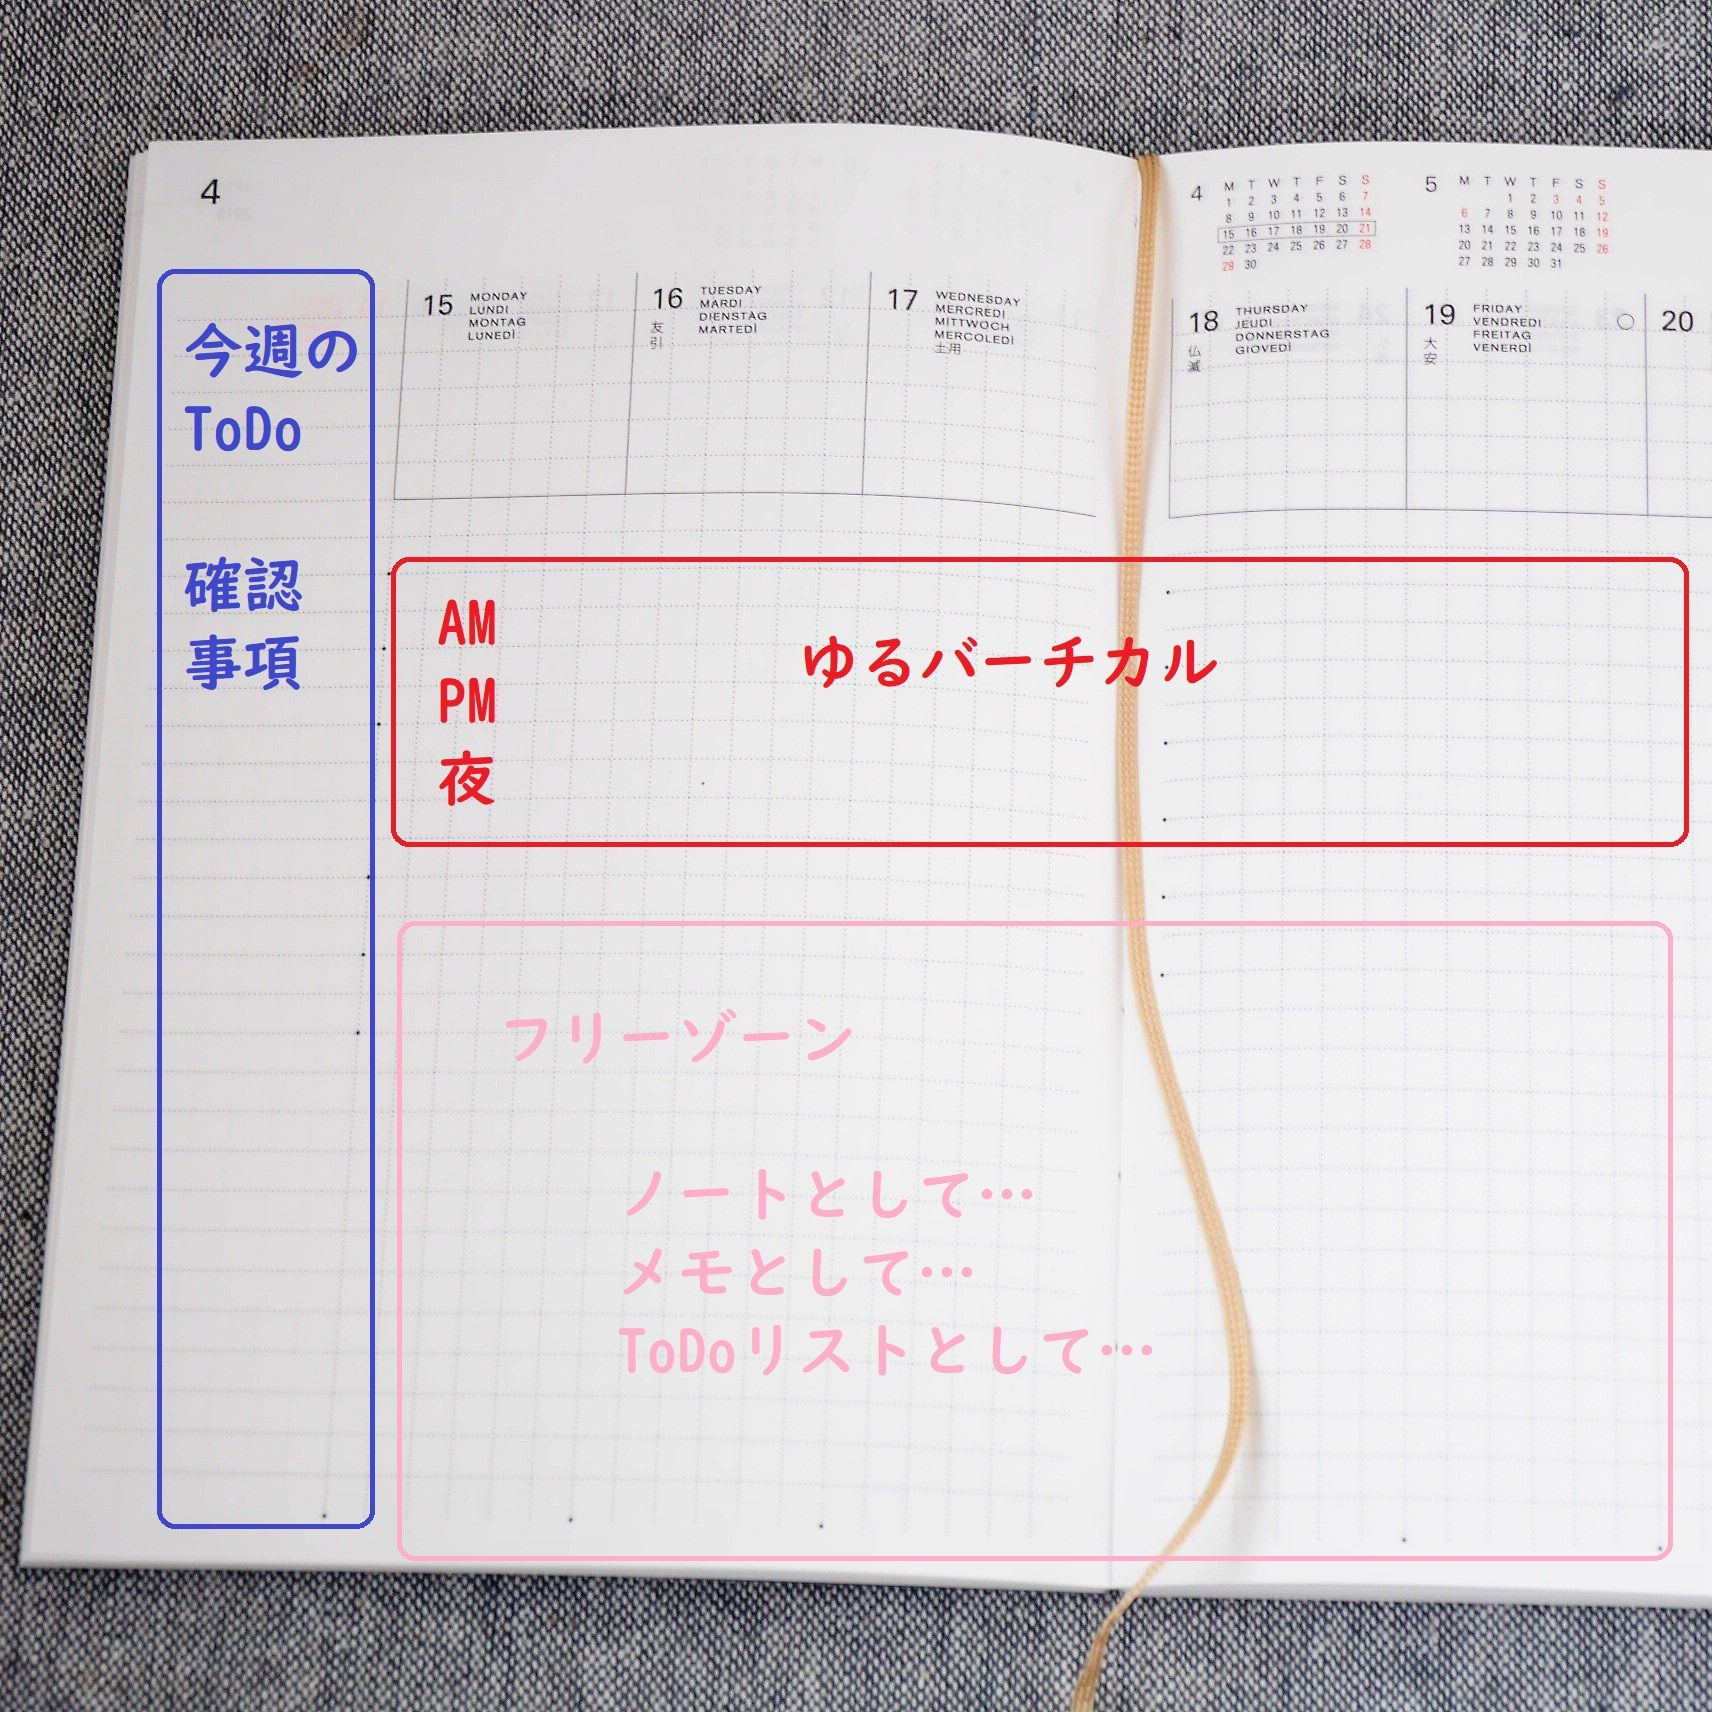 4
今週の
ToDo
確認
事項
15 MONDAY
LUNDI
MONTAG
LUNEDÌ
16 TUESDAY
MARDI
DIENSTAG
MARTEDÌ
友引
17 WEDNESDAY
MERCREDI
MITTWOCH
MERCOLEDÌ
土用
4
M T W T F S S
1 2 3 4 5 6 7
8 9 10 11 12 13 14
15 16 17 18 19 20 21
22 23 24 25 26 27 28
29 30
5
M T W T F S S
1 2 3 4 5
6 7 8 9 10 11 12
13 14 15 16 17 18 19
20 21 22 23 24 25 26
27 28 29 30 31
18 THURSDAY
JEUDI
DONNERSTAG
GIOVEDÌ
仏滅
19 FRIDAY
VENDREDI
FREITAG
VENERDÌ
大安
20
AM
PM
夜
ゆるバーチカル
フリーゾーン
ノートとして…
メモとして…
ToDoリストとして…